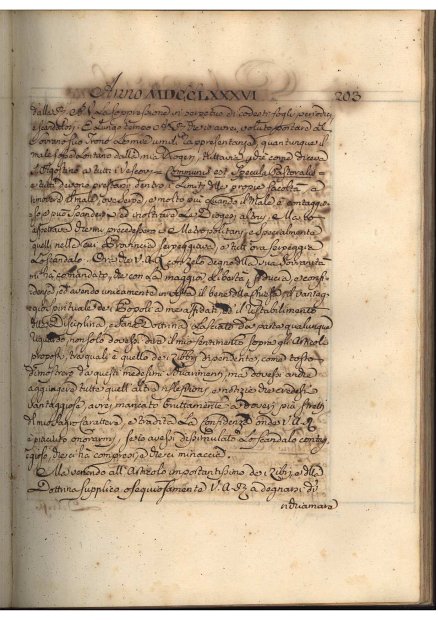 Anno MDCCLXXXVI 203
dalla V. A. R. la soppressione in perpetuo di codesti fogli periodici
scandolosi. E lungo tempo che io avrei voluto portare al
Sovrano suo Trono le mie umili rappresentanze quantunque il
male fosse lontano dalla mia Diogesi, tuttavia
S. Agostino a tutti i Vescovi Communis est Specula Pastoralis
e tutti devono prestarsi dentro i limiti delle proprie facoltà a
rimovere il male, ove scopresi, e molto più quando il Male è contaggio
so, e può spandersi ed inoltrare le Diogesi altrui. Ma ho
aspettato che mi precedessero i Metropolitani, e specialmente
quelli nella cui Provincia serpeggiava, e tutt'ora serpeggia
lo scandalo. Ora che V. A. R. Zelo degna della sua Sovranità
mi ha comandato, che con la maggior libertà, fiducia, e confi
denza, ed avendo unicamente in vista il bene della Chiesa, il vantag
gio spirituale de' Popoli a me affidati, ed il ristabilimento
della Disciplina, e sana Dottrina lasciato da parte qualunque
riguardo, non solo dovessi dire il mio sentimento sopra gli Articoli
proposti, tra quali è quello de' libri dipendente, come tosto
dimostrerò da questi medesimi schiarimenti, ma dovessi anche
aggiugnere tutte quell'altre riflessioni, e notizie che credessi
vantaggiose, avrei mancato bruttamente a' doveri più stretti
del mio carattere, e tradita la Confidenza onde V. A. R.
è piaciuto onorarmi, se io avessi dissimulato lo scandalo contag
gioso, che ci ha compresi, e che ci minaccia.
Ma venendo all'Articolo importantissimo de' libri, e della
Dottrina supplico ossequiosamente V. A. R. a degnarsi di
richiamare